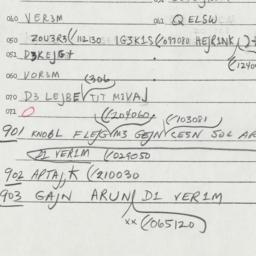 060 VER3M
061 Q ELSW
050 ZOU3R3 (/112130 IG3K1S (/097080 HEJR1NK
051 D3KEJG+
(/1240
060 VOR3M
(306)
070 D3 LEJBE TJT M3VAJ
072
(/204060 (/103081
901 KNOBL FLEJG M3 GEJN CE5N SOL AR
D1 VER1M (/029050
902 APTAJ,K (/210030
903 GAJN ARUN D1 VER1M
xx (/065120